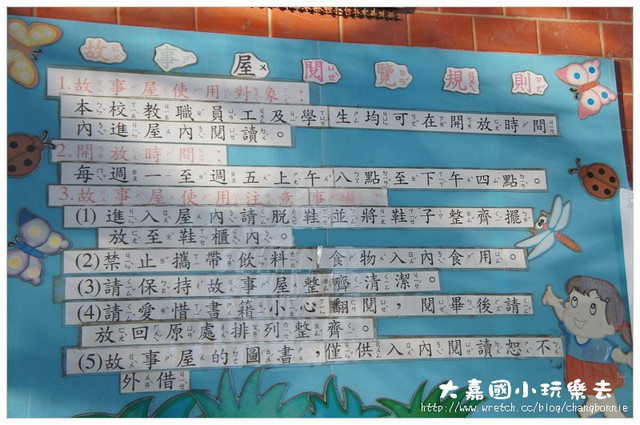 故事屋閱覽規則
1.故事屋使用對象：
本校教職員工及學生均可在開放時間
內進屋內閱讀。
2.開放時間：
每週一至週五上午八點至下午四點。
3.故事屋使用注意事項
(1)進入屋內請脫鞋並將鞋子整齊擺
放至鞋櫃內。
(2)禁止攜帶飲料、食物入內食用。
(3)請保持故事屋整齊清潔。
(4)請愛惜書籍小心翻閱，閱畢後請
放回原處排列整齊。
(5)故事屋的圖書，僅供入內閱讀恕不
外借
大嘉國小玩樂去
http://www.wretch.cc/blog/changbonnie